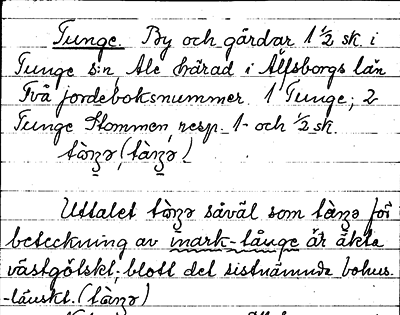 Tunge. By och gårdar 1 1/2 sk. i
Tunge s:n, Ale härad i Älfsborgs län
Två jordeboksnummer. 1 Tunge; 2
Tunge Stommen, resp. 1- och 1/2 sk.
tòŋə, (tàŋə)
Uttalet tòŋə såväl som tàŋə för
beteckning av mark-tånge är äkta
västgötskt; blott det sistnämnda bohus-
-länskt. (tàŋə)